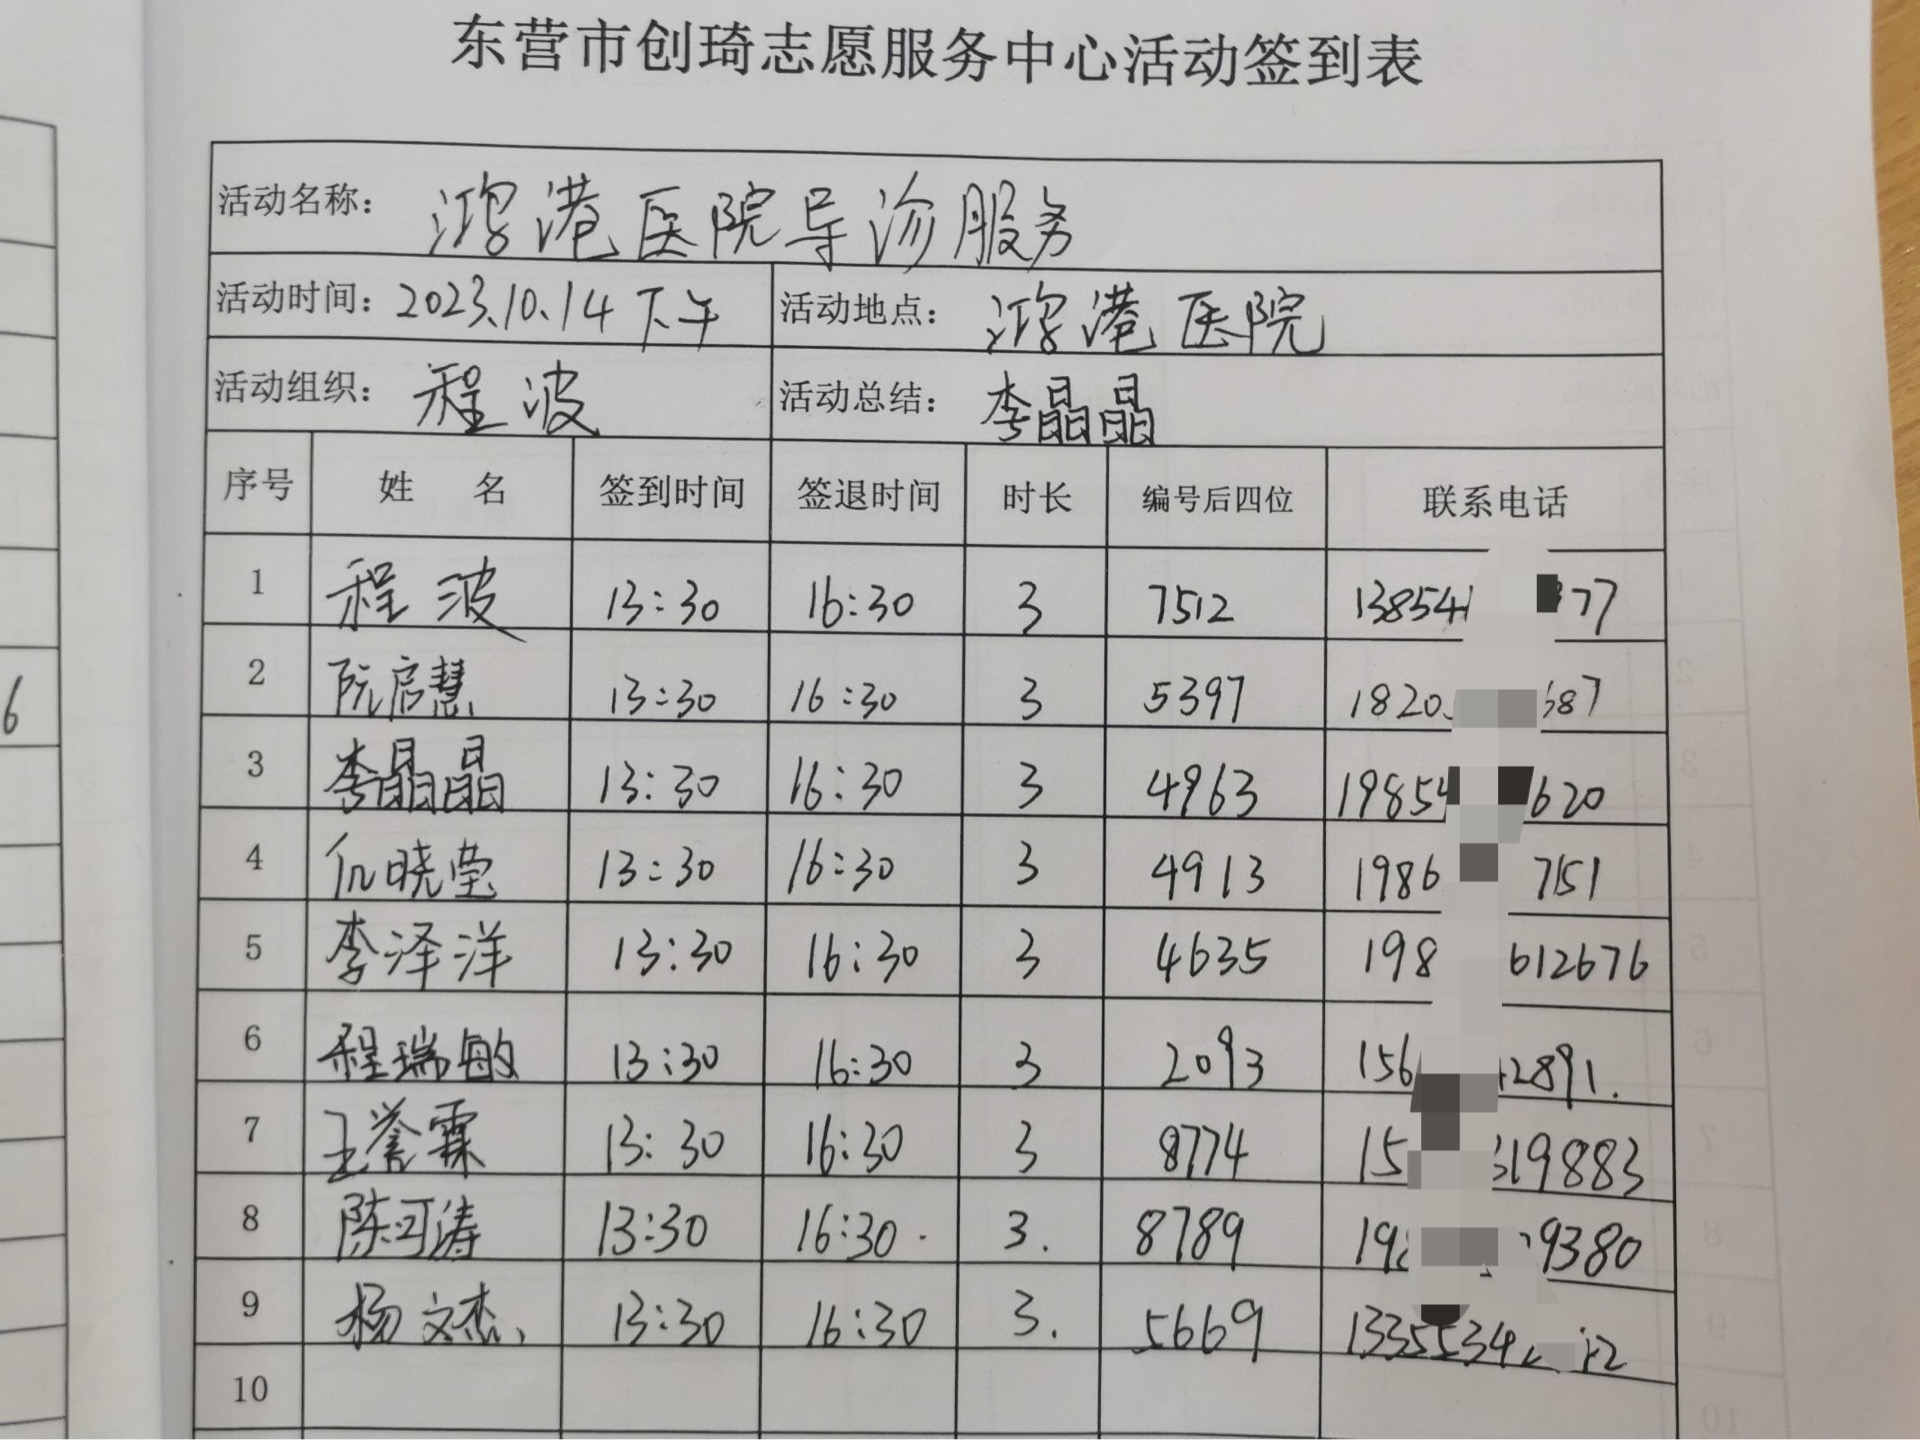 东营市创琦志愿服务中心活动签到表
活动名称： 鸿港医院导诊服务
活动时间：2023.10.14下午 活动地点： 鸿港医院
活动组织： 程波 活动总结： 李晶晶
序号 姓 名 签到时间 签退时间 时长 编号后四位 联系电话
1 程波 13:30 16:30 3 7512 13854 77
2 阮启慧 13:30 16:30 3 5397 1820 687
3 李晶晶 13:30 16:30 3 4963 1985 620
4 仉晓莹 13:30 16:30 3 4913 1986 7151
5 李泽洋 13:30 16:30 3 4635 198 612676
6 程瑞敏 13:30 16:30 3 2093 156 2891.
7 王誉霖 13:30 16:30 3 8774 15 319883
8 陈可涛 13:30 16:30. 3. 8789 19 9380
9 杨文杰 13:30 16:30 3. 5669 1335534 2
10
6